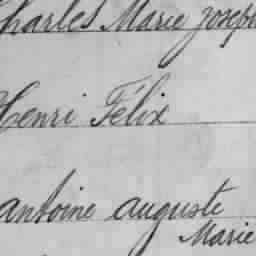 Charles Marie Joseph
Henri Félix
antoine auguste
Marie